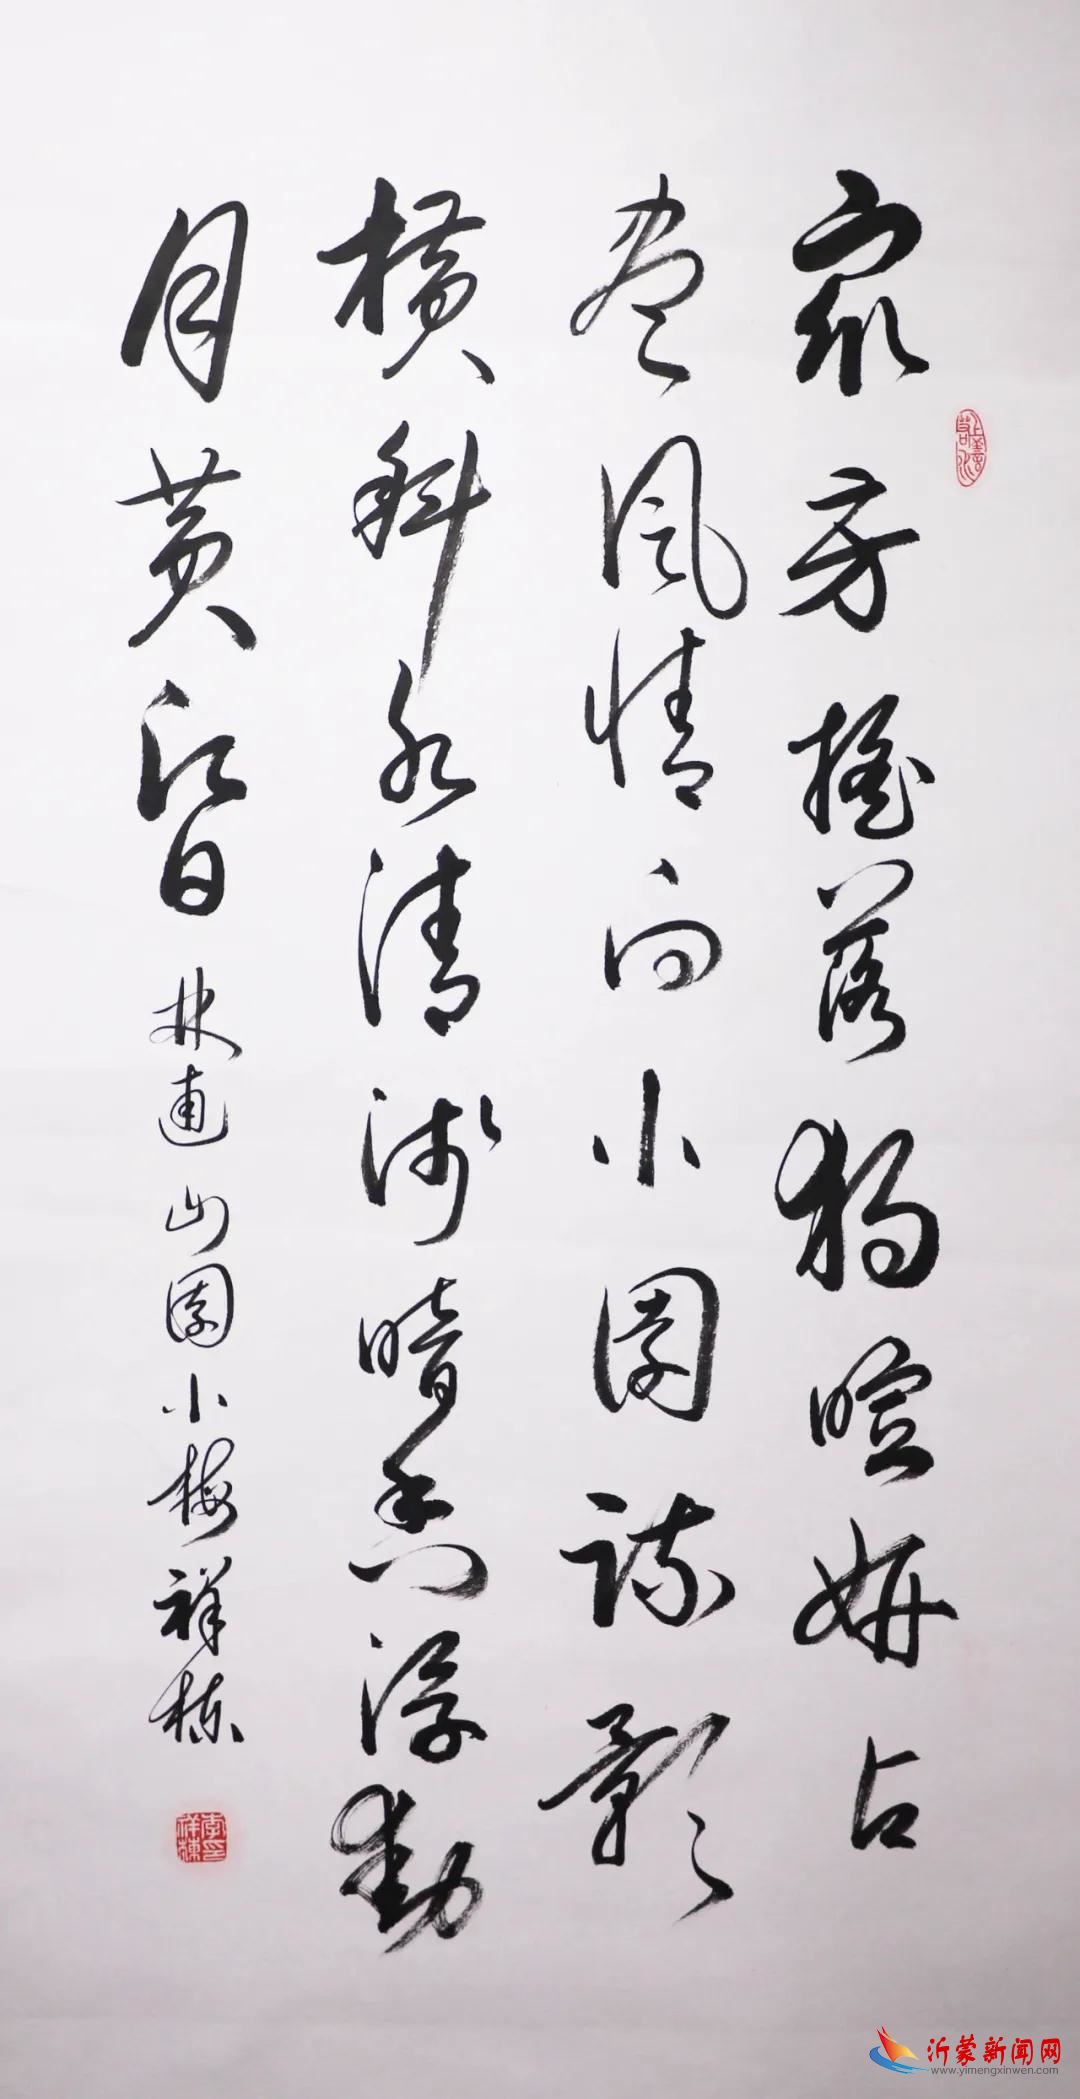 众芳摇落独暄妍占
尽风情向小园疏影
横斜水清浅暗香浮动
月黄昏 林逋山园小梅 祥栋
上善若水
李祥栋印
沂蒙新闻网
www.yimengxinwen.com